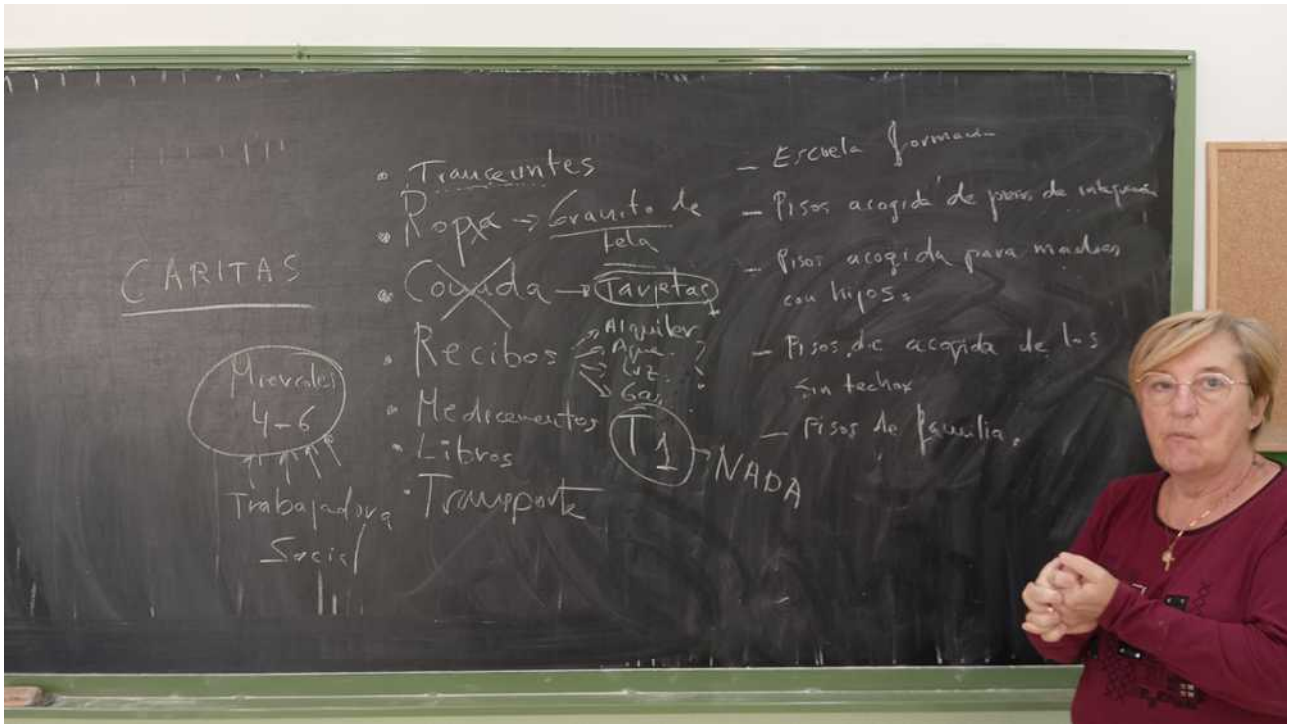 CARITAS
Miercoles
4-6
Trabajadora
Social
• Tranceuntes
• Ropa → Granito de
tela
• Comida → Tarjetas
• Recibos → Alquiler
→ Agua
→ Luz
→ Gas
• Medicamentos
• Libros
• Transporte
T1 → NADA
– Escuela
– Pisos acogida de de
– Pisos acogida para madres
con hijos.
– Pisos de acogida de los
sin techos
– Pisos de familia.